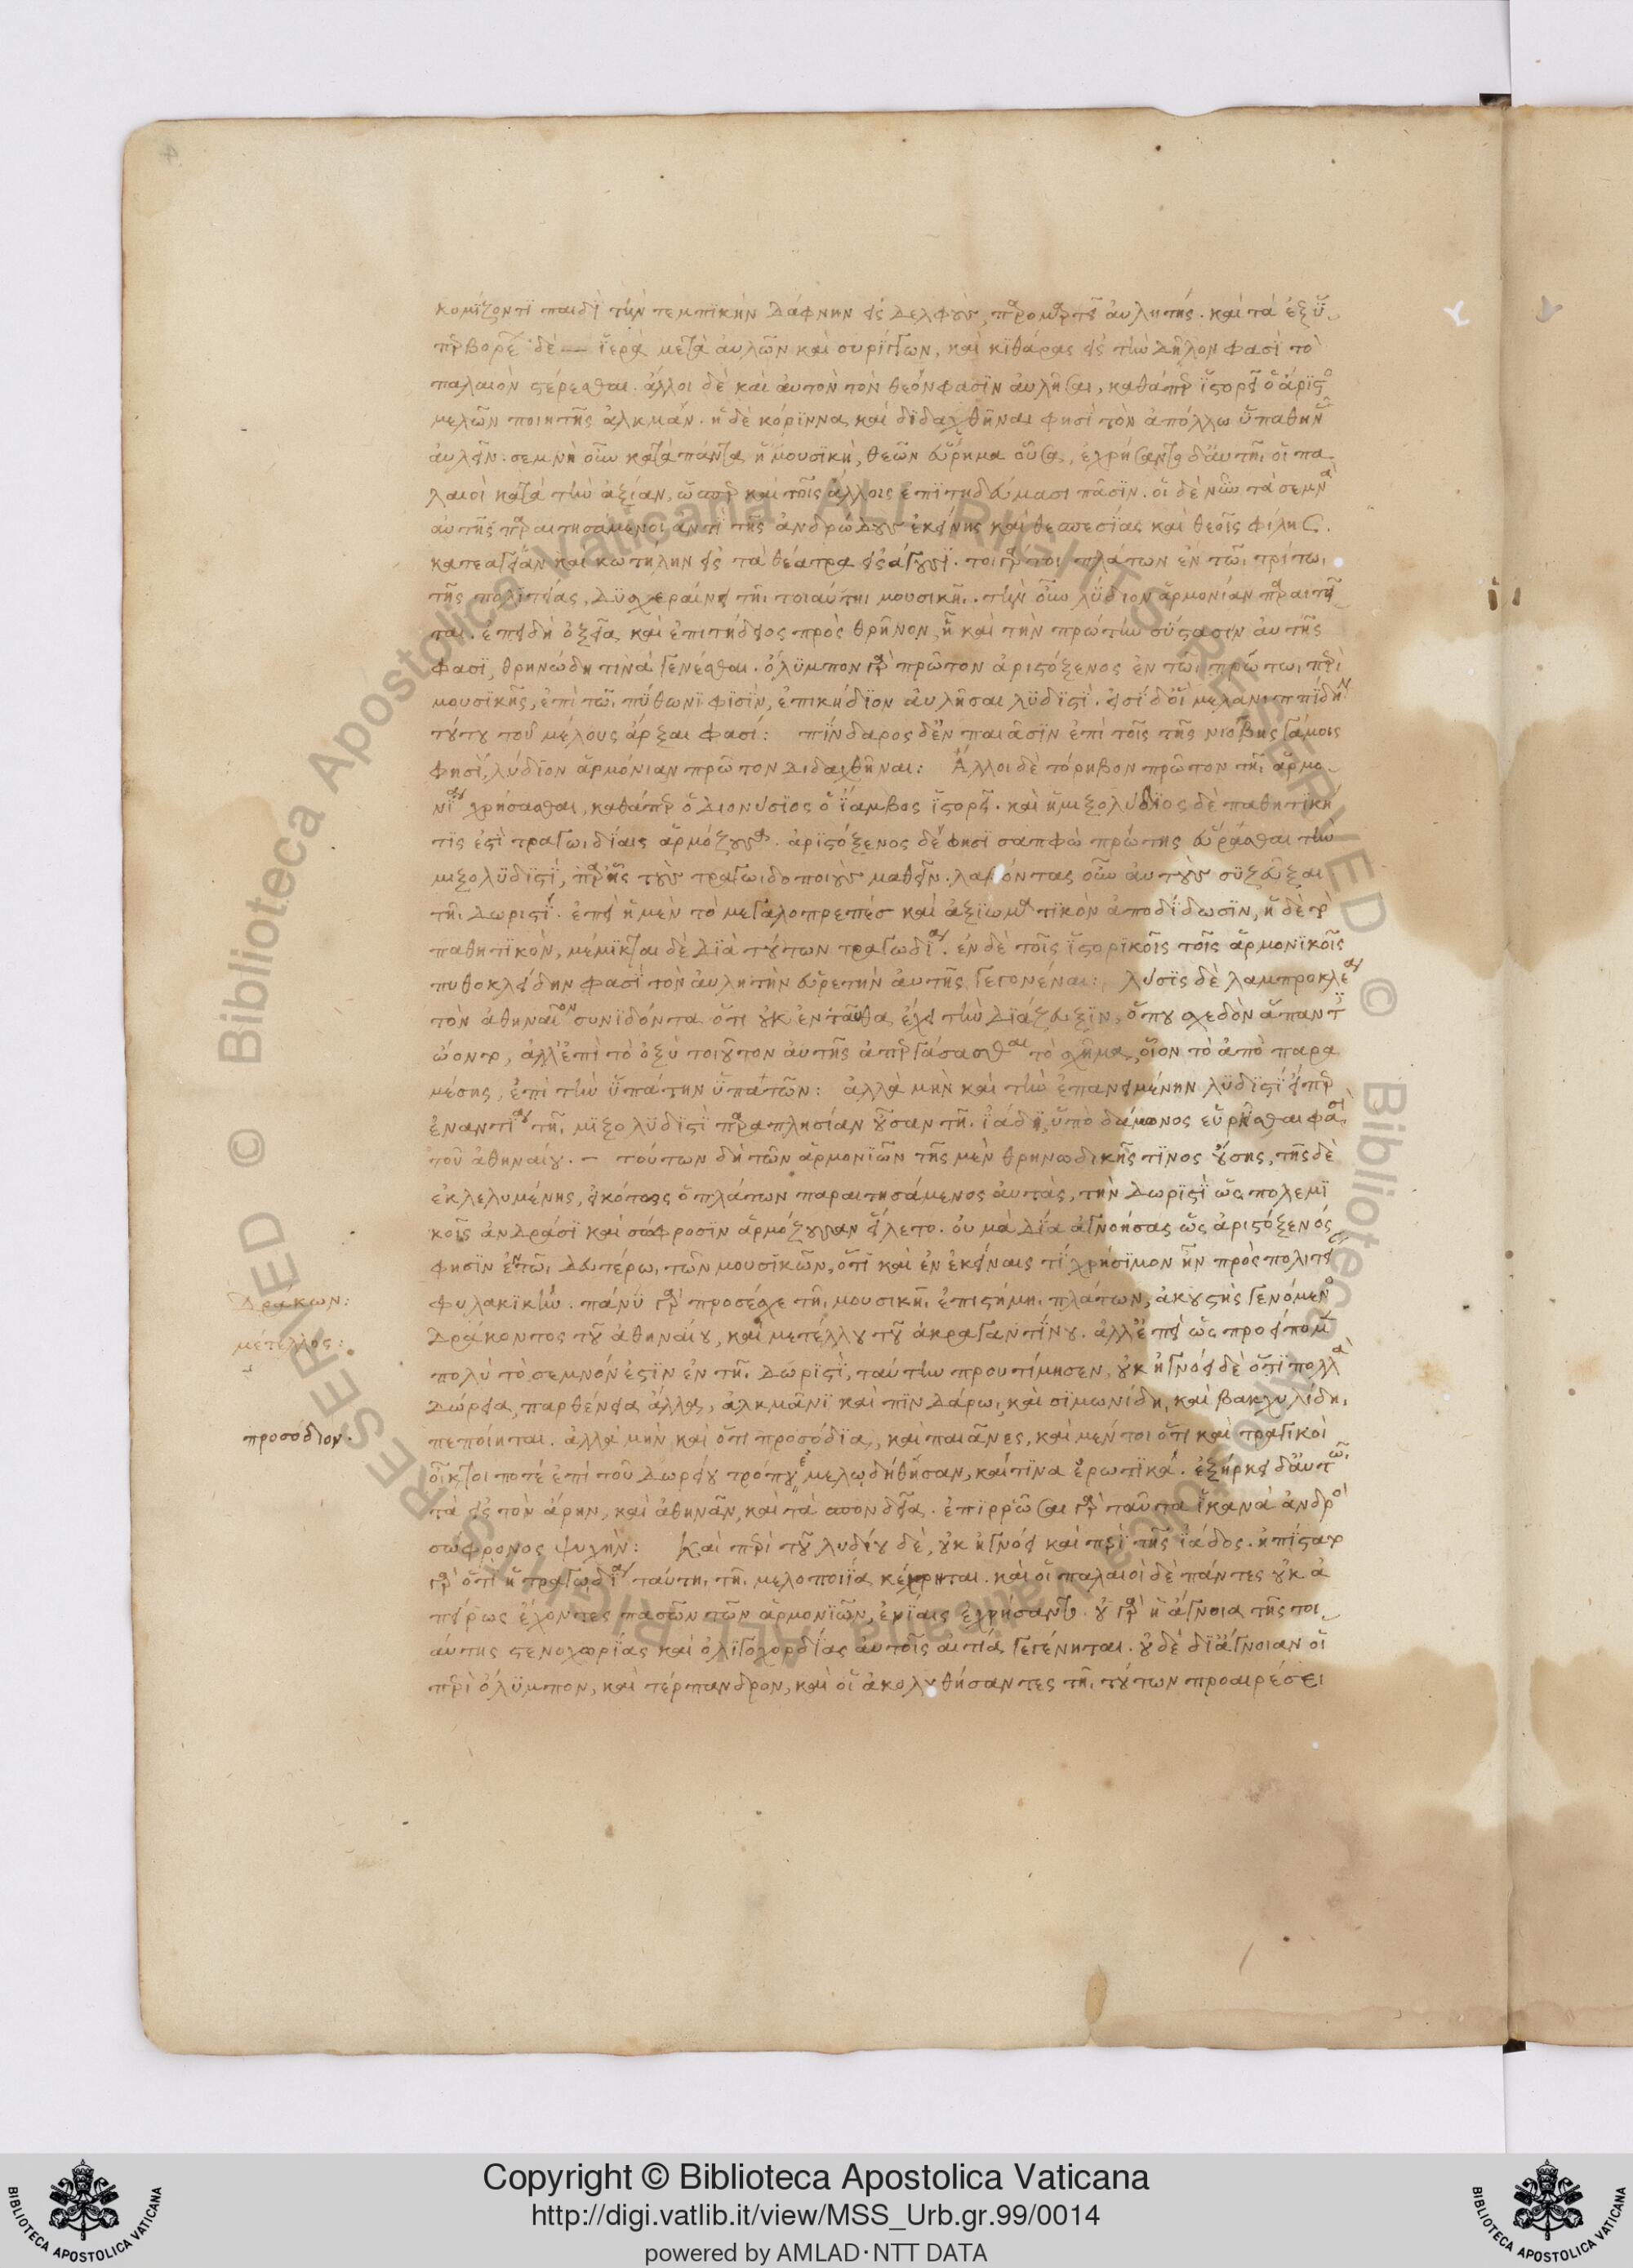 κομίζοντι παιδὶ τὴν τεμπικὴν δάφνην εἰς δελφοὺς, παρομαρτεῖ αὐλητής. καὶ τὰ ἐξ ὑ
περβορέ δὲ — ἱερὰ μετὰ αὐλῶν καὶ συρίγγων, καὶ κιθάρας εἰς τὴν δῆλον φασὶ τὸ
παλαιὸν στέρεσθαι. ἄλλοι δὲ καὶ αὐτὸν τὸν θεόν φασιν αὐλῆσαι, καθάπερ ἱστορεῖ ὁ ἄριστος
μελῶν ποιητὴς ἀλκμάν. ἡ δὲ κόριννα καὶ διδαχθῆναι φησὶ τὸν ἀπόλλω ὑπ' ἀθην
αὐλεῖν. σεμνὴ οὖν κατὰ πάντα ἡ μουσικὴ, θεῶν εὕρημα οὖσα, ἐχρήσαντο δ' αὐτῇ οἱ πα
λαιοὶ κατὰ τὴν ἀξίαν, ὥσπερ καὶ τοῖς ἄλλοις ἐπιτηδεύμασι πᾶσιν. οἱ δὲ νῦν τὰ σεμνὰ
αὐτῆς παραιτησάμενοι ἀντὶ τῆς ἀνδρώδους ἐκείνης καὶ θεσπεσίας καὶ θεοῖς φίλης
κατεαγεῖαν καὶ κωτίλην εἰς τὰ θέατρα εἰσάγουσι. τοιγάρτοι πλάτων ἐν τῷ τρίτῳ
τῆς πολιτείας, δυσχεραίνει τῇ τοιαύτῃ μουσικῇ. τὴν οὖν λύδιον ἁρμονίαν παραιτεῖ
ται. ἐπειδὴ ὀξεῖα καὶ ἐπιτήδειος πρὸς θρῆνον, ᾗ καὶ τὴν πρώτην σύστασιν αὐτῆς
φασὶ, θρηνώδη τινὰ γενέσθαι. ὄλυμπον γὰρ πρῶτον ἀριστόξενος ἐν τῷ πρώτῳ περὶ
μουσικῆς, ἐπὶ τῷ πύθωνι φισὶν, ἐπικήδιον αὐλῆσαι λυδιστί. εἰσὶ δ' οἳ μελανιππίδην
τούτου τοῦ μέλους ἄρξαι φασί: πίνδαρος δ' ἐν παιᾶσιν ἐπὶ τοῖς τῆς νιόβης γάμοις
φησὶ, λύδιον ἁρμόνιαν πρῶτον διδαχθῆναι: Ἄλλοι δὲ τόρηβον πρῶτον τῇ ἁρμο
νίᾳ χρήσασθαι, καθάπερ ὁ διονύσιος ὁ ἴαμβος ἱστορεῖ. καὶ ἡ μιξολύδιος δὲ παθητική
τις ἐστὶ τραγῳδίαις ἁρμόζουσα. ἀριστόξενος δέ φησι σαπφὼ πρώτης εὕρασθαι τὴν
μιξολυδιστί, παρ' ἧς τοὺς τραγῳδοποιοὺς μαθεῖν. λαβόντας οὖν αὐτοὺς συζεῦξαι
τῇ δωριστί. ἐπεὶ ἡ μὲν τὸ μεγαλοπρεπές καὶ ἀξιωματικὸν ἀποδίδωσιν, ἡ δὲ τὸ
παθητικὸν, μέμικται δὲ διὰ τούτων τραγωδία. ἐν δὲ τοῖς ἱστορικοῖς τοῖς ἁρμονικοῖς
πυθοκλείδην φασὶ τὸν αὐλητὴν εὑρετὴν αὐτῆς γεγονέναι: λύσις δὲ λαμπροκλέα
τὸν ἀθηναῖον συνιδόντα ὅτι οὐκ ἐνταῦθα ἔχει τὴν διάζευξιν, ὅπου σχεδὸν ἅπαντες
ᾤοντο, ἀλλ' ἐπὶ τὸ ὀξὺ τοιοῦτον αὐτῆς ἀπεργάσασθαι τὸ σχῆμα, οἷον τὸ ἀπὸ παρα
μέσης, ἐπὶ τὴν ὑπάτην ὑπατῶν: ἀλλὰ μὴν καὶ τὴν ἐπανειμένην λυδιστί εἴπερ
ἐναντία τῇ μιξολυδιστὶ παραπλησίαν οὖσαν τῇ ἰάδι, ὑπὸ δάμωνος εὑρῆσθαι φασὶ
τοῦ ἀθηναίου. – τούτων δὴ τῶν ἁρμονιῶν τῆς μὲν θρηνωδικῆς τινος οὔσης, τῆς δὲ
ἐκλελυμένης, εἰκότως ὁ πλάτων παραιτησάμενος αὐτὰς, τὴν δωριστὶ ὡς πολεμι
κοῖς ἀνδράσι καὶ σώφροσιν ἁρμόζουσαν εἵλετο. οὐ μὰ δία ἀγνοήσας ὡς ἀριστόξενός
φησιν ἐν τῷ δευτέρῳ τῶν μουσικῶν, ὅτι καὶ ἐν ἐκείναις τὶ χρήσιμον ἦν πρὸς πολιτεί
φυλακικὴν. πάνυ γὰρ προσέσχε τῇ μουσικῇ ἐπιστήμῃ πλάτων, ἀκουστὴς γενόμενος
δράκοντος τοῦ ἀθηναίου, καὶ μετέλλου τοῦ ἀκραγαντίνου. ἀλλ' ἐπεὶ ὡς προείπομεν
πολὺ τὸ σεμνόν ἐστιν ἐν τῇ δωριστὶ, ταύτην προυτίμησεν, οὐκ ἠγνόει δὲ ὅτι πολλὰ
δώρεια, παρθένεια ἄλλα, ἀλκμᾶνι καὶ πινδάρῳ, καὶ σιμωνίδῃ, καὶ βακχυλίδῃ
πεποίηται. ἀλλὰ μὴν καὶ ὅτι προσόδια, καὶ παιᾶνες, καὶ μέντοι ὅτι καὶ τραγικοὶ
οἶκτοι ποτὲ ἐπὶ τοῦ δωρείου τρόπου ἐμελῳδήθησαν, καί τινα ἐρωτικά. ἐξήρκει δ' αὐτῷ
τὰ εἰς τὸν ἄρην, καὶ ἀθηνᾶν, καὶ τὰ σπονδεῖα. ἐπιρρῶσαι γὰρ ταῦτα ἱκανὰ ἀνδρὸς
σώφρονος ψυχὴν: Καὶ περὶ τοῦ λυδίου δὲ, οὐκ ἠγνόει καὶ περὶ τῆς ἰάδος. ἠπίστατο
γὰρ ὅτι ἡ τραγωδία ταύτῃ τῇ μελοποιίᾳ κέχρηται. καὶ οἱ παλαιοὶ δὲ πάντες οὐκ ἀ
πείρως ἔχοντες πασῶν τῶν ἁρμονιῶν, ἐνίαις ἐχρήσαντο. οὐ γὰρ ἡ ἄγνοια τῆς τοι
αύτης στενοχωρίας καὶ ὀλιγοχορδίας αὐτοῖς αἰτία γεγένηται. οὐδὲ δι' ἄγνοιαν οἱ
περὶ ὄλυμπον, καὶ τέρπανδρον, καὶ οἱ ἀκολουθήσαντες τῇ τούτων προαιρέσει
Δράκων:
μέτελλος:
προσόδιον.
Copyright © Biblioteca Apostolica Vaticana
http://digi.vatlib.it/view/MSS_Urb.gr.99/0014
powered by AMLAD·NTT DATA
BIBLIOTECA APOSTOLICA VATICANA
BIBLIOTECA APOSTOLICA VATICANA
© Biblioteca Apostolica Vaticana ALL RIGHTS RESERVED
© Biblioteca Apostolica Vaticana ALL RIGHTS RESERVED